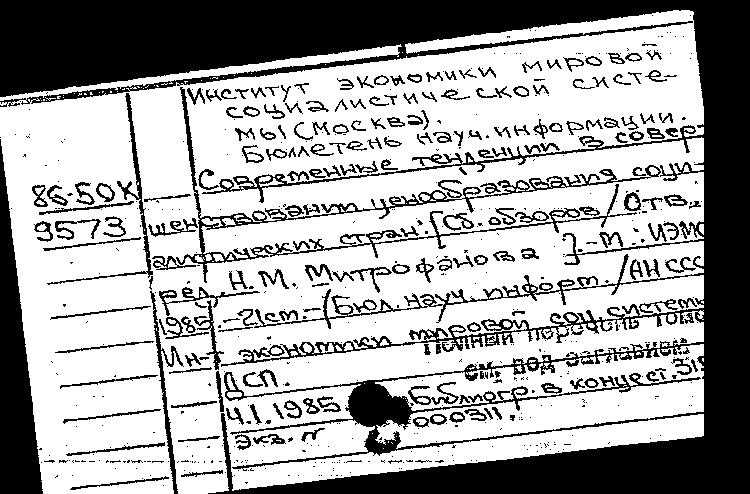 Институт экономики мировой
социалистической систе-
мы (Москва).
Бюллетень науч. информации.
Современные тенденции в совер-
86-50К
шенствовании ценообразования соци-
9573
алистических стран: [Сб. обзоров / Отв.
ред. Н.М. Митрофанова] - М.: ИЭМС
1985. - 21см. - (Бюл. науч. информ. / АН ССС
Ин-т экономики мировой соц. системы
Полный перечень томо
см. под заглавием
ДСП.
4.1.1985. Библиогр. в конце ст. 315
Экз. 000311.